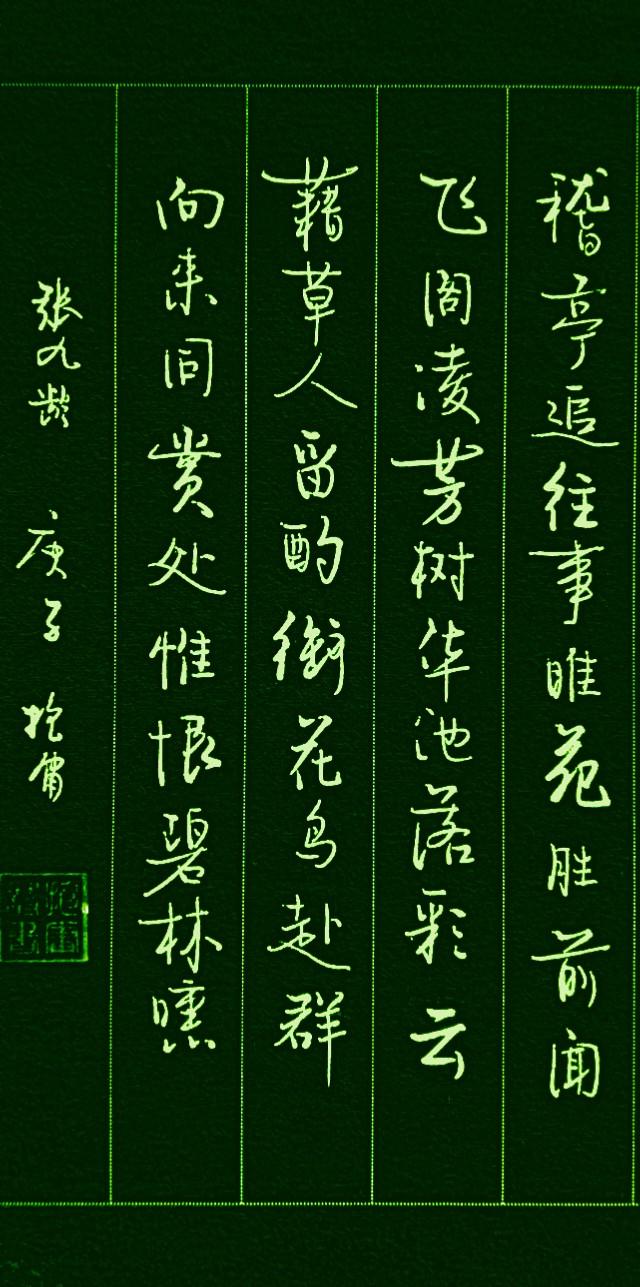 稽亭追往事睢苑胜前闻
飞阁凌芳树华池落彩云
藉草人留酌衔花鸟赴群
向来同赏处惟恨碧林曛
张九龄 庚子 抱庸